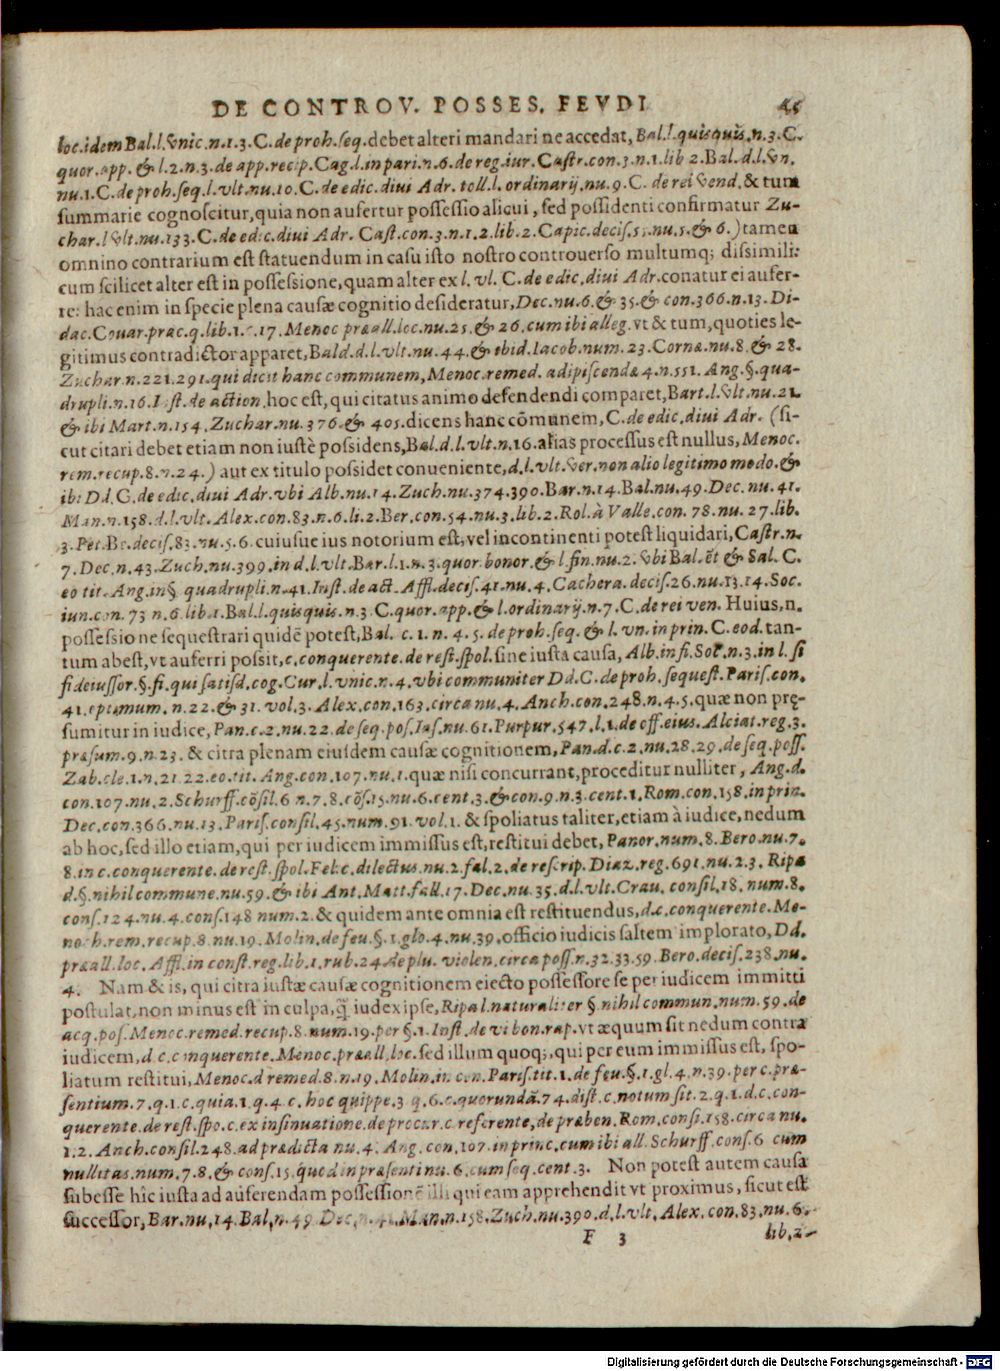 DE CONTROV. POSSES. FEVDI 45
loc. idem Bal. l. vnic. n. 1. 3. C. de proh. seq. debet alteri mandari ne accedat, Bal. l. quisquis. n. 3. C.
quor. app. & l. 2. n. 3. de app. recip. Cag. l. in pari. n. 6. de reg. iur. Castr. con. 3. n. 1. lib 2. Bal. d. l. vn.
nu. 1. C. de proh. seq. l. vlt. nu. 10. C. de edic. diui Adr. toll. l. ordinarij. nu. 9. C. de rei vend. & tum
summarie cognoscitur, quia non aufertur possessio alicui, sed possidenti confirmatur Zu-
char. l vlt. nu. 133. C. de edic. diui Adr. Cast. con. 3. n. 1. 2. lib. 2. Capic. decis. 5. nu. 5. & 6.) tamen
omnino contrarium est statuendum in casu isto nostro controuerso multumq; dissimili:
cum scilicet alter est in possessione, quam alter ex l. vl. C. de edic. diui Adr. conatur ei aufer-
re: hac enim in specie plena causæ cognitio desideratur, Dec. nu. 6. & 35. & con. 366. n. 13. Di-
dac. Couar. prac. q. lib. 1. c. 17. Menoc præall. loc. nu. 25. & 26. cum ibi alleg. vt & tum, quoties le-
gitimus contradictor apparet, Bald. d. l. vlt. nu. 44. & ibid. Iacob. num. 23. Corne. nu. 8. & 28.
Zuchar. n. 221. 291. qui dicit hanc communem, Menoc. remed. adipiscendæ 4. n. 551. Ang. §. qua-
drupli. n. 16. Inst. de action. hoc est, qui citatus animo defendendi comparet, Bart. l. vlt. nu. 21.
& ibi Mart. n. 154. Zuchar. nu. 376. & 405. dicens hanc cōmunem, C. de edic. diui Adr. (si-
cut citari debet etiam non iustè possidens, Bal. d. l. vlt. n. 16. alias processus est nullus, Menoc.
rem. recup. 8. n. 24.) aut ex titulo possidet conueniente, d. l. vlt. ver. non alio legitimo modo. &
ibi Dd. C. de edic. diui Adr. vbi Alb. nu. 14. Zuch. nu. 374. 390. Bar. n. 14. Bal. nu. 49. Dec. nu. 41.
Man. n. 158. d. l. vlt. Alex. con. 83. n. 6. li. 2. Ber. con. 54. nu. 3. lib. 2. Rol. à Valle. con. 78. nu. 27. lib.
3. Pet. Be. decis. 83. nu. 5. 6. cuiusue ius notorium est, vel incontinenti potest liquidari, Castr. n.
7. Dec. n. 43. Zuch. nu. 399. in d. l. vlt. Bar. l. 1. n. 3. quor. bonor. & l. fin. nu. 2. vbi Bal. ēt & Sal. C.
eo tit. Ang. in § quadrupli. n. 41. Inst. de act. Affl. decis. 41. nu. 4. Cachera. decis. 26. nu. 13. 14. Soc.
iun. con. 73 n. 6. lib. 1. Bal. l. quisquis. n. 3 C. quor. app. & l. ordinarij. n. 7. C. de rei ven. Huius, n.
possessione sequestrari quidē potest, Bal. c. 1. n. 4. 5. de proh. seq. & l. vn. in prin. C. eod. tan-
tum abest, vt auferri possit, c. conquerente. de rest. spol. sine iusta causa, Alb. in fi. Soc. n. 3. in l. si
fideiussor. §. fi. qui satisd. cog. Cur. l. vnic. n. 4. vbi communiter Dd. C. de proh. sequest. Paris. con.
41. optimum. n. 22. & 31. vol. 3. Alex. con. 163. circa nu. 4. Anch. con. 248. n. 4. 5. quæ non prę-
sumitur in iudice, Pan. c. 2. nu. 22. de seq. pos. Ias. nu. 61. Purpur. 547. l. 1. de off. eius. Alciat. reg. 3.
præsum. 9. n. 23. & citra plenam eiusdem causæ cognitionem, Pan. d. c. 2. nu. 28. 29. de seq. poss.
Zab. cle. 1. n. 21. 22. eo. tit. Ang. con. 107. nu. 1. quæ nisi concurrant, proceditur nulliter, Ang. d.
con. 107. nu. 2. Schurff. cōsil. 6 n. 7. 8. cōs. 15. nu. 6. cent. 3. & con. 9. n. 3. cent. 1. Rom. con. 158. in prin.
Dec. con. 366. nu. 13. Paris. consil. 45. num. 91. vol 1. & spoliatus taliter, etiam à iudice, nedum
ab hoc, sed illo etiam, qui per iudicem immissus est, restitui debet, Panor. num. 8. Bero. nu. 7.
8. in c. conquerente. de rest. spol. Fel. c. dilectus. nu. 2. fal. 2. de rescrip. Diaz. reg. 691. nu. 2. 3. Ripa
d. §. nihil commune. nu. 59. & ibi Ant. Matt. fall. 17. Dec. nu. 35. d. l. vlt. Crau. consil. 18. num. 8.
cons. 124. nu. 4. cons. 148 num. 2. & quidem ante omnia est restituendus, d. c. conquerente. Me-
noch. rem. recup. 8. nu. 19. Molin. de feu. §. 1. glo. 4. nu. 39. officio iudicis saltem implorato, Dd.
præall. loc. Affl. in const. reg. lib. 1. rub. 24 de plu. violen. circa poss. n. 32. 33. 59. Bero. decis. 238. nu.
4. Nam & is, qui citra iustæ causæ cognitionem eiecto possessore se per iudicem immitti
postulat, non minus est in culpa, q̃ iudex ipse, Ripa l. naturaliter §. nihil commun. num. 59. de
acq. pos. Menoc. remed. recup. 8. num. 19. per §. 1. Inst. de vi bon. rap. vt æquum sit nedum contra
iudicem, d. c. conquerente. Menoc. præall. loc. sed illum quoq;, qui per eum immissus est, spo-
liatum restitui, Menoc. d remed. 8. n. 19. Molin. in con. Paris. tit. 1. de feu. §. 1. gl. 4. n. 39. per c. præ-
sentium. 7. q. 1. c. quia. 1. q. 4. c. hoc quippe. 3. q. 6. c. quorundā. 74. dist. c. notum sit. 2. q. 1. d. c. con-
querente. de rest. spo. c. ex insinuatione. de procur. c. referente, de præben. Rom. consi. 158. circa nu.
1. 2. Anch. consil. 248. ad prædicta nu. 4. Ang. con. 107. in princ. cum ibi all. Schurff. cons. 6 cum
nullitas. num. 7. 8. & cons. 15. quod in præsenti nu. 6. cum seq. cent. 3. Non potest autem causa
subesse hîc iusta ad auferendam possessionē illi qui eam apprehendit vt proximus, sicut est
successor, Bar. nu. 14. Bal. n. 49. Dec. n. 41. Man. n. 158. Zuch. nu. 390. d. l. vlt. Alex. con. 83. nu. 6.
F 3 lib. 2.
Digitalisierung gefördert durch die Deutsche Forschungsgemeinschaft - DFG